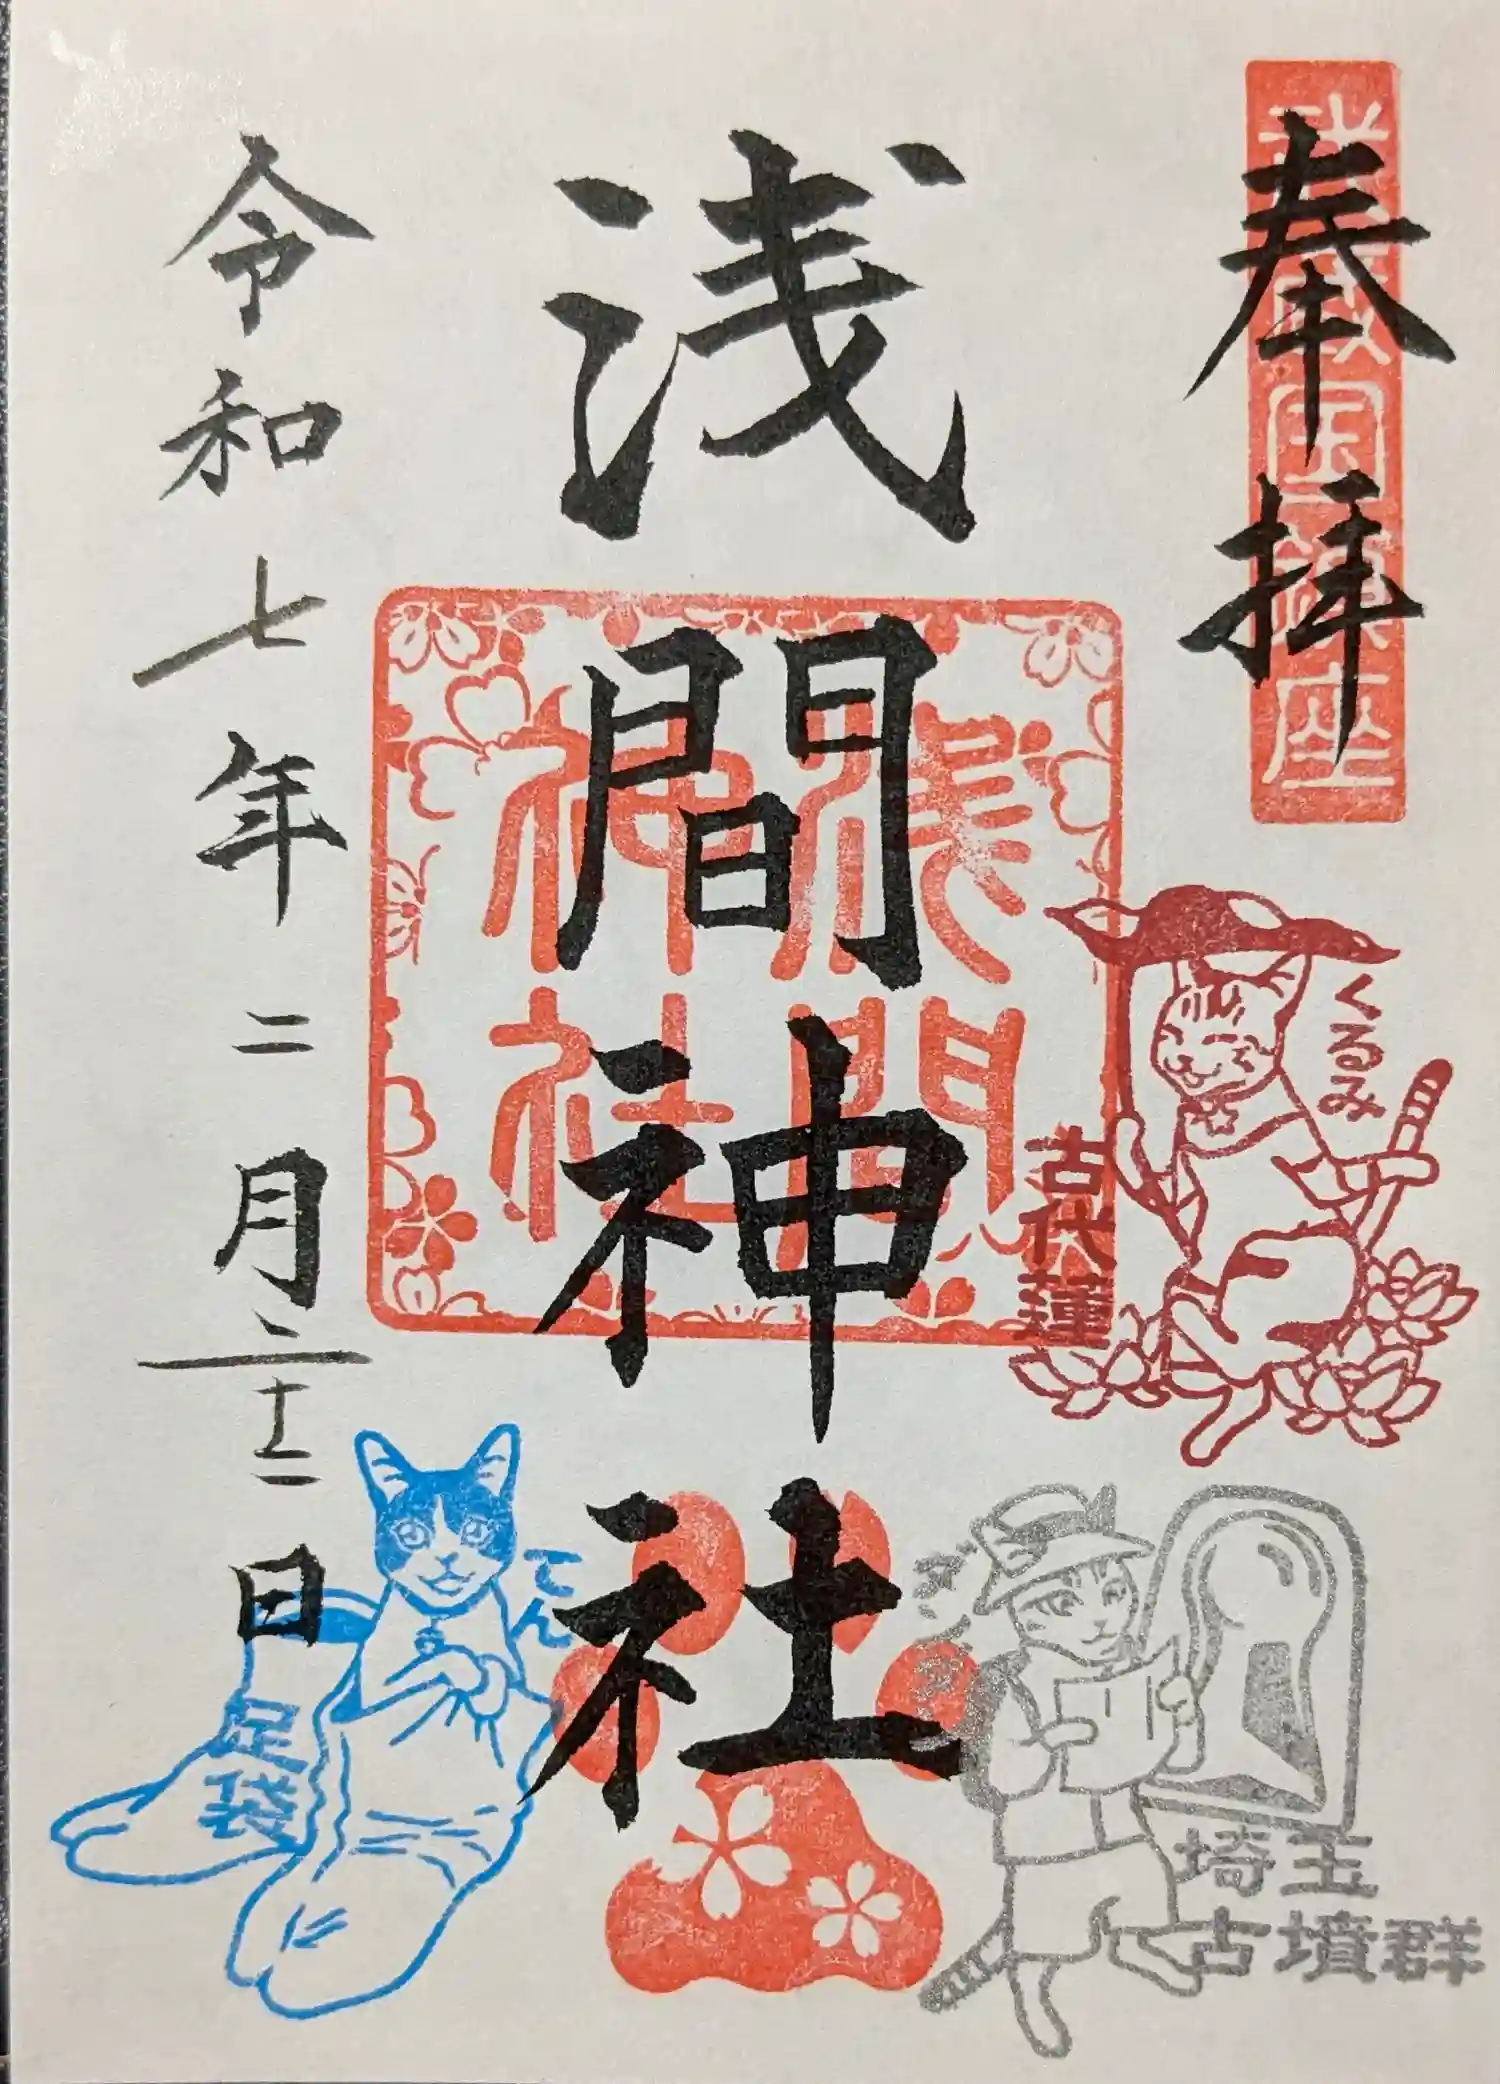 奉拝
武蔵国鎮座
浅間神社
浅間
神社
令和七年二月二十二日
くるみ
古代蓮
埼玉
古墳群
てん
足袋